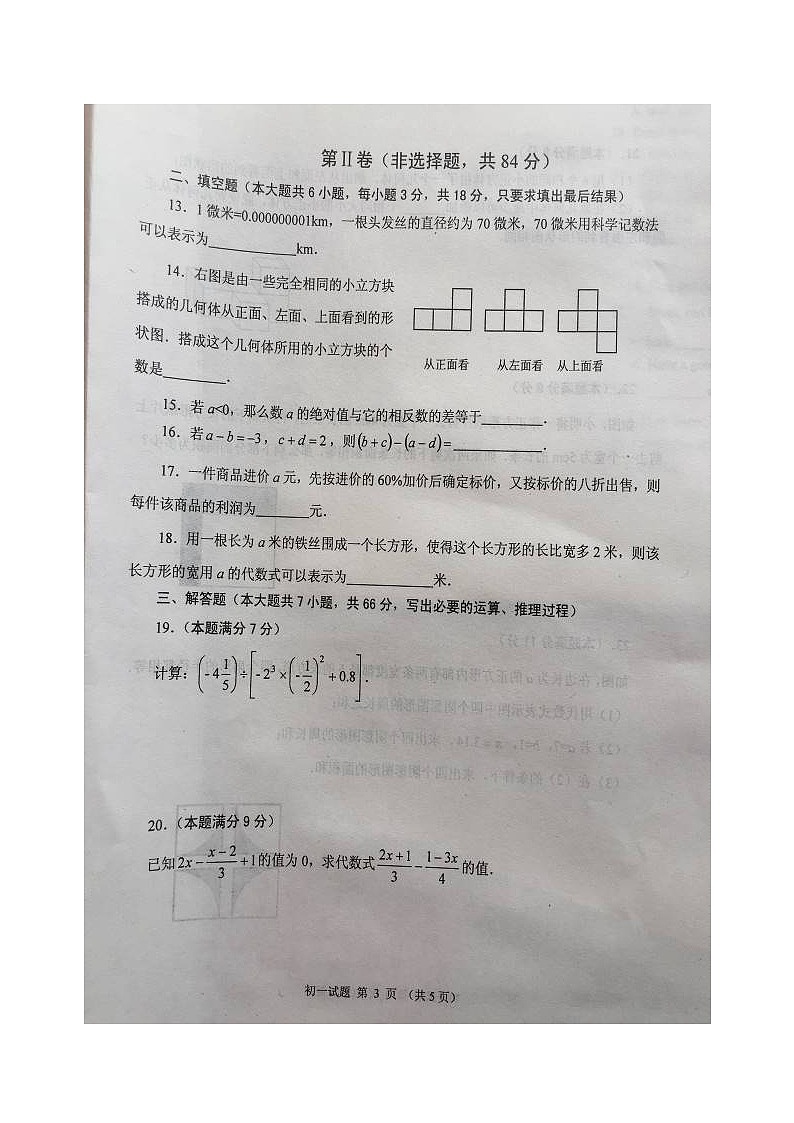 第Ⅱ卷（非选择题，共84分）
二、填空题（本大题共6小题，每小题3分，共18分，只要求填出最后结果）
13．1微米=0.000000001km，一根头发丝的直径约为70微米，70微米用科学记数法
可以表示为____________km．
14．右图是由一些完全相同的小立方块
搭成的几何体从正面、左面、上面看到的形
状图．搭成这个几何体所用的小立方块的个
数是________．
从正面看 从左面看 从上面看
15．若a<0，那么数a的绝对值与它的相反数的差等于________．
16．若a－b=－3，c+d=2，则(b+c)－(a－d)=____________．
17．一件商品进价a元，先按进价的60%加价后确定标价，又按标价的八折出售，则
每件该商品的利润为_______元．
18．用一根长为a米的铁丝围成一个长方形，使得这个长方形的长比宽多2米，则该
长方形的宽用a的代数式可以表示为____________米．
三、解答题（本大题共7小题，共66分，写出必要的运算、推理过程）
19．（本题满分7分）
计算：(-4 1/5)÷[-2³×(-1/2)²+0.8]．
20．（本题满分9分）
已知2x－(x－2)/3+1的值为0，求代数式(2x+1)/3－(1－3x)/4的值．
初一试题 第 3 页 （共5页）